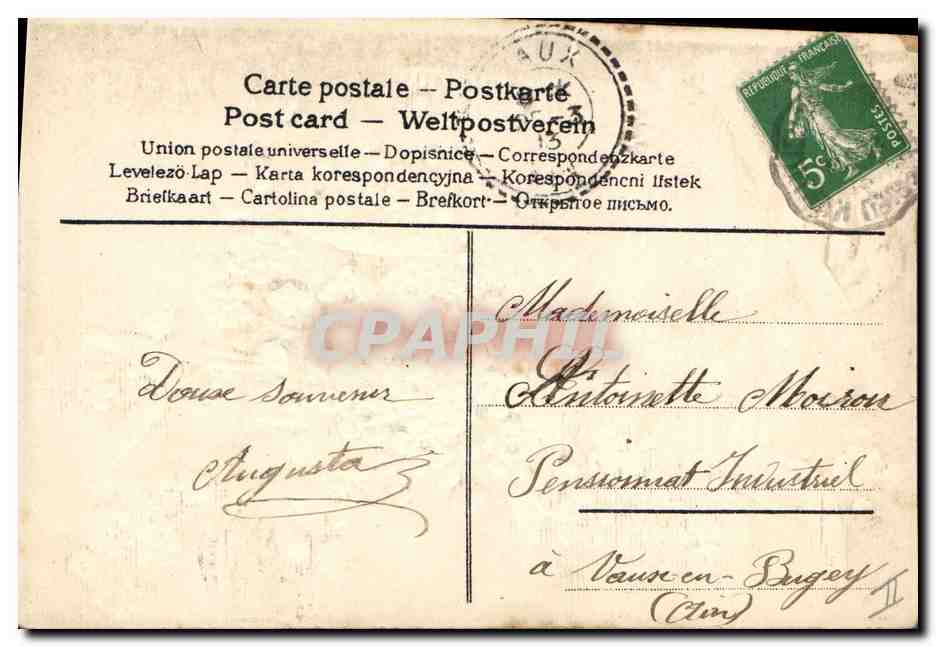 Carte postale – Postkarte
Post card – Weltpostverein
Union postale universelle – Dopisnice – Correspondenzkarte
Levelezö-Lap – Karta korespondencyjna – Korespondencni listek
Briefkaart – Cartolina postale – Brefkort – Открытое письмо.
AUX
13
REPUBLIQUE FRANÇAISE
POSTES
5c
CPAPHIL
Douse souvenir
Augusta
Mademoiselle
Antoinette Moiron
Pensionnat Industriel
à Vaux-en-Bugey
(Ain)
II